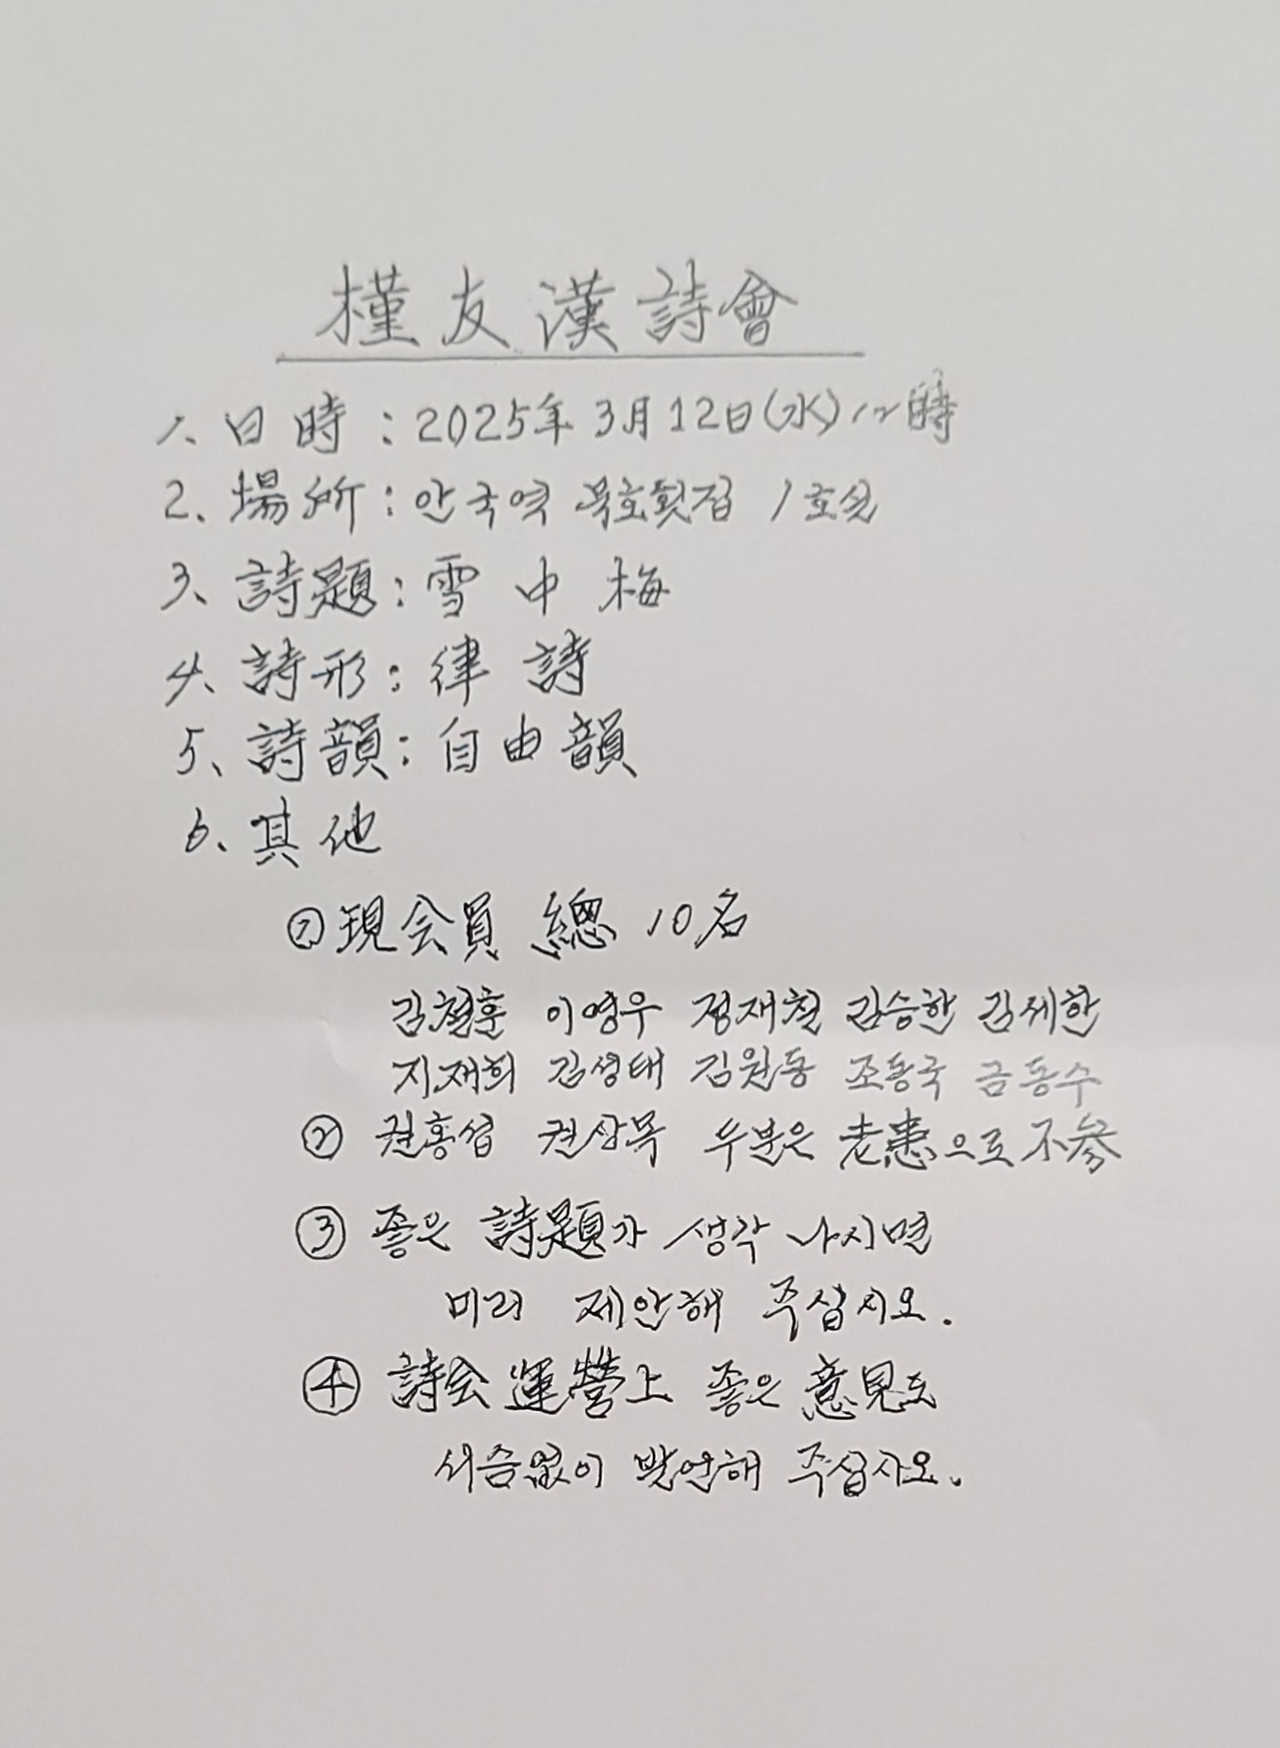 槿友漢詩會
1. 日時 : 2025年 3月 12日(水) 12時
2. 場所 : 안국역 묵호횟집 1호실
3. 詩題 : 雪中梅
4. 詩形 : 律詩
5. 詩韻 : 自由韻
6. 其他
① 現会員 總 10名
김철훈 이영우 정재철 김승한 김제한
지재희 김성태 김원동 조동국 금동수
② 권홍섭 권상목 두분은 老患으로 不参
③ 좋은 詩題가 생각 나시면
미리 제안해 주십시오.
④ 詩会 運營上 좋은 意見도
서슴없이 발언해 주십시오.